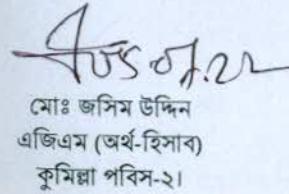 মোঃ জসিম উদ্দিন
এজিএম (অর্থ-হিসাব)
কুমিল্লা পবিস-২।